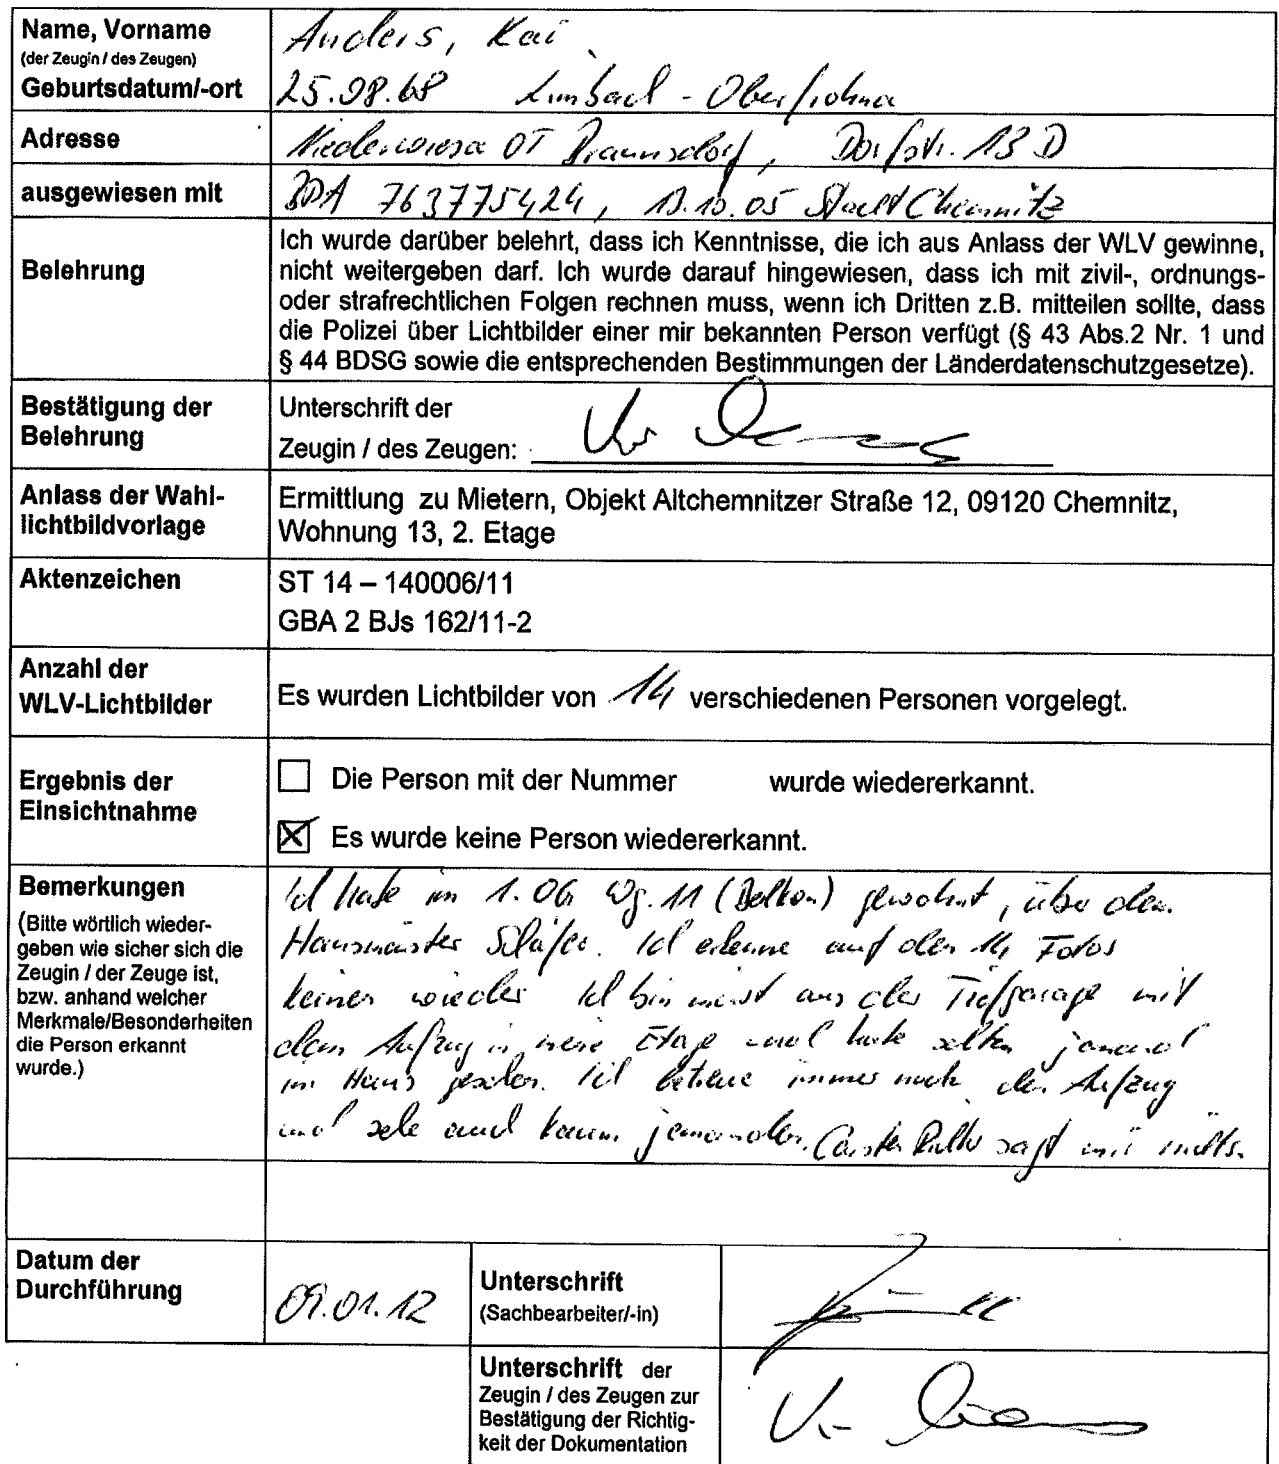 Name, Vorname
(der Zeugin / des Zeugen)
Anders, Kai
Geburtsdatum/-ort
25.08.68 Limbach - Oberfrohna
Adresse
Niederwiesa OT Braunsdorf, Dorfstr. 13 D
ausgewiesen mit
BPA 763775424, 13.10.05 Stadt Chemnitz
Belehrung
Ich wurde darüber belehrt, dass ich Kenntnisse, die ich aus Anlass der WLV gewinne,
nicht weitergeben darf. Ich wurde darauf hingewiesen, dass ich mit zivil-, ordnungs-
oder strafrechtlichen Folgen rechnen muss, wenn ich Dritten z.B. mitteilen sollte, dass
die Polizei über Lichtbilder einer mir bekannten Person verfügt (§ 43 Abs.2 Nr. 1 und
§ 44 BDSG sowie die entsprechenden Bestimmungen der Länderdatenschutzgesetze).
Bestätigung der
Belehrung
Unterschrift der
Zeugin / des Zeugen:
Anlass der Wahl-
lichtbildvorlage
Ermittlung zu Mietern, Objekt Altchemnitzer Straße 12, 09120 Chemnitz,
Wohnung 13, 2. Etage
Aktenzeichen
ST 14 – 140006/11
GBA 2 BJs 162/11-2
Anzahl der
WLV-Lichtbilder
Es wurden Lichtbilder von 14 verschiedenen Personen vorgelegt.
Ergebnis der
Einsichtnahme
Die Person mit der Nummer wurde wiedererkannt.
Es wurde keine Person wiedererkannt.
Bemerkungen
(Bitte wörtlich wieder-
geben wie sicher sich die
Zeugin / der Zeuge ist,
bzw. anhand welcher
Merkmale/Besonderheiten
die Person erkannt
wurde.)
Ich habe im 1. OG Wg. 11 (Balkon) gewohnt, über dem
Hausmeister Schäfer. Ich erkenne auf den 14 Fotos
keinen wieder. Ich bin meist aus der Tiefgarage mit
dem Aufzug in meine Etage und habe selten jemand
im Haus gesehen. Ich betreue immer noch den Aufzug
und sehe auch kaum jemanden. Carsten sagt mir nichts.
Datum der
Durchführung
09.01.12
Unterschrift
(Sachbearbeiter/-in)
Unterschrift der
Zeugin / des Zeugen zur
Bestätigung der Richtig-
keit der Dokumentation